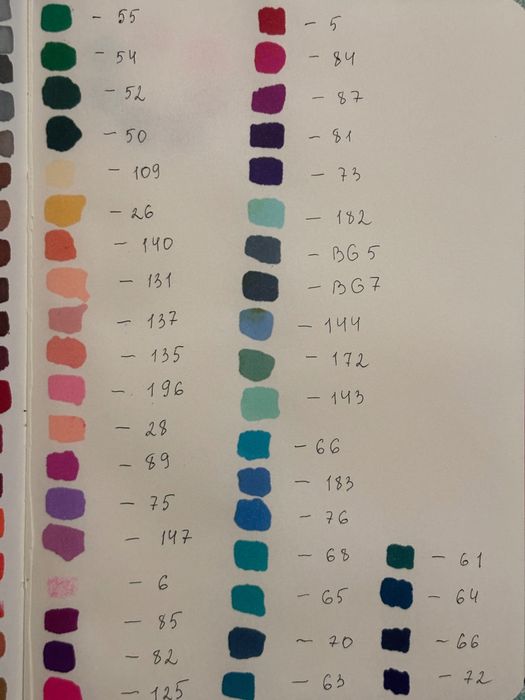 - 55
- 54
- 52
- 50
- 109
- 26
- 140
- 131
- 137
- 135
- 196
- 28
- 89
- 75
- 147
- 6
- 85
- 82
- 125
- 5
- 84
- 87
- 81
- 73
- 182
- BG 5
- BG 7
- 144
- 172
- 143
- 66
- 183
- 76
- 68
- 65
- 70
- 63
- 61
- 64
- 66
- 72